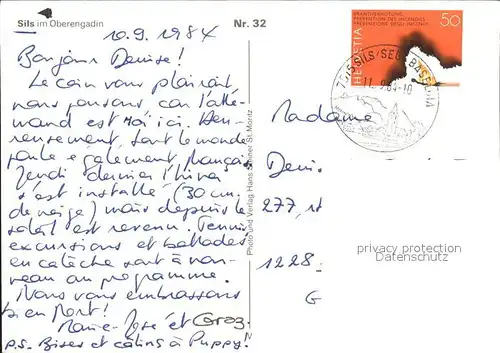 Sils im Oberengadin
Nr. 32
10.9.1984
Bonjour Denise!
Le coin vous plairait,
nous pensons car l'alle-
mand est roi ici. Heu-
reusement, tout le monde
parle également français
Jeudi dernier l'hiver
s'est installé (30 cm.
de neige) mais depuis le
soleil est revenu. Tennis
excursions et ballades
en calèche sont à nou-
veau au programme.
Nous vous embrassons
bien fort!
Marie-José et
P.S. Bises et câlins à Puppy!
Photo und Verlag Hans Steiner St. Moritz
BRANDVERHÜTUNG
PREVENTION DES INCENDIES
PREVENZIONE DEGLI INCENDI
50
HELVETIA
SILS/SEGL BASELGIA
11.9.84-10
Madame
Denis
277,
1228
G
privacy protection
Datenschutz